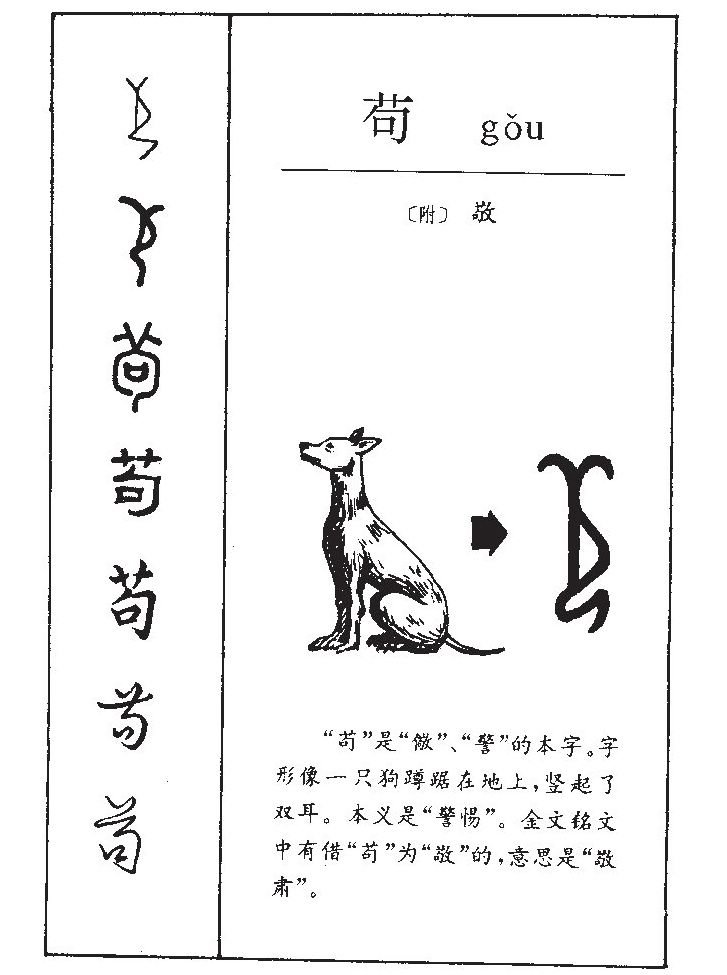 苟 gǒu
〔附〕 敬
“苟”是“儆”、“警”的本字。字
形像一只狗蹲踞在地上，竖起了
双耳。本义是“警惕”。金文铭文
中有借“苟”为“敬”的，意思是“敬
肃”。
苟
苟
苟
苟